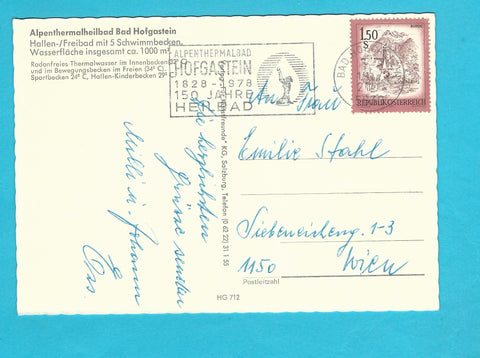 Alpenthermalheilbad Bad Hofgastein
Hallen-/Freibad mit 5 Schwimmbecken,
Wasserfläche insgesamt ca. 1000 m²
Radonfreies Thermalwasser im Innenbecken 32° C
und im Bewegungsbecken im Freien (34° C).
Sportbecken 24° C, Hallen-Kinderbecken 29° C
ALPENTHERMALBAD
HOFGASTEIN
1828-1978
150 JAHRE
HEILBAD
1.50
S
REPUBLIK ÖSTERREICH
BAD
Die herzlichsten
Grüsse senden
Milli u. Johann
KG, Salzburg, Telefon (0 62 22) 31 1 55
An Frau
Emilie Stahl
Siebeneicheng. 1-3
1150 Wien
Postleitzahl
HG 712